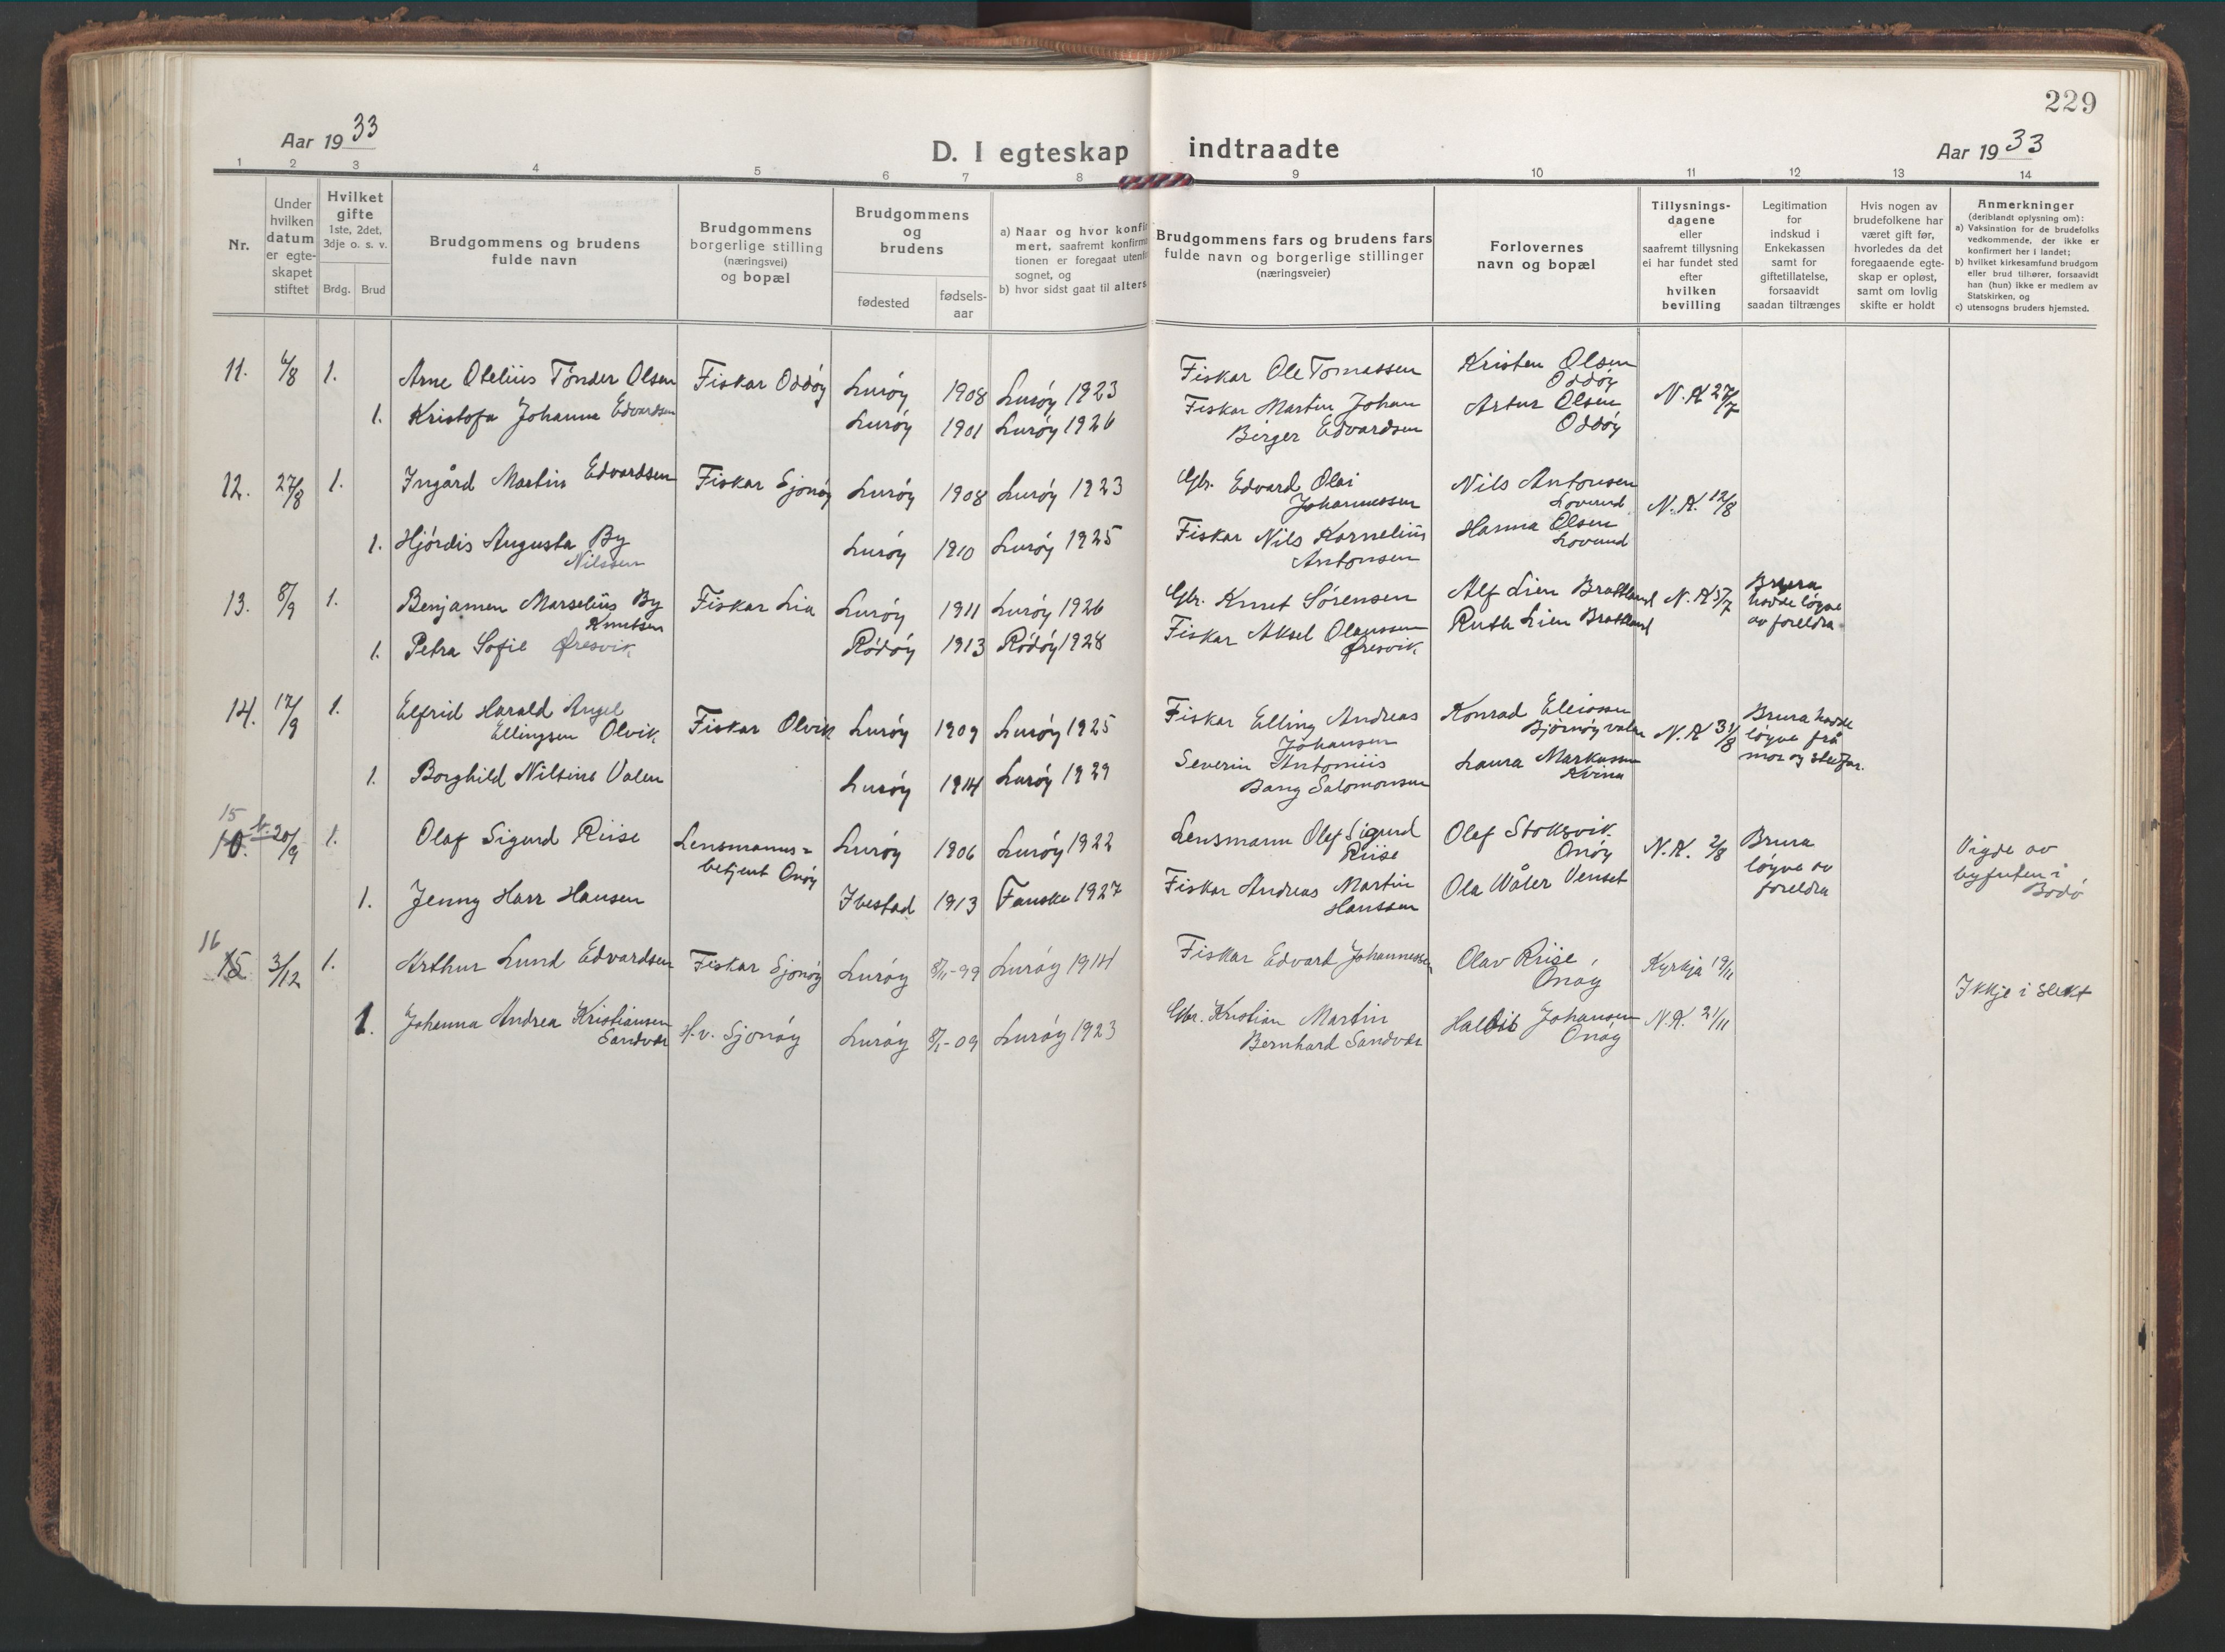 229
Aar 1933
D. I egteskap indtraadte
Aar 1933
1 2 3 4 5 6 7 8 9 10 11 12 13 14
Nr.
Under
hvilken
datum
er egte-
skapet
stiftet
Hvilket
gifte
1ste, 2det,
3dje o. s. v.
Brdg. Brud
Brudgommens og brudens
fulde navn
Brudgommens
borgerlige stilling
(næringsvei)
og bopæl
Brudgommens
og
brudens
fødested
fødsels-
aar
a) Naar og hvor konfir
mert, saafremt konfirma
tionen er foregaat utenfo
sognet, og
b) hvor sidst gaat til alters
Brudgommens fars og brudens fars
fulde navn og borgerlige stillinger
(næringsveier)
Forlovernes
navn og bopæl
Tillysnings-
dagene
eller
saafremt tillysning
ei har fundet sted
efter
hvilken
bevilling
Legitimation
for
indskud i
Enkekassen
samt for
giftetillatelse,
forsaavidt
saadan tiltrænges
Hvis nogen av
brudefolkene har
været gift før,
hvorledes da det
foregaaende egte-
skap er opløst,
samt om lovlig
skifte er holdt
Anmerkninger
(deriblandt oplysning om):
a) Vaksination for de brudefolks
vedkommende, der ikke er
konfirmert her i landet;
b) hvilket kirkesamfund brudgom
eller brud tilhører, forsaavidt
han (hun) ikke er medlem av
Statskirken, og
c) utensogns bruders hjemsted.
11. 6/8 1. Arne Otelius Tönder Olsen Fiskar Oddöy Luröy 1908 Luröy 1923 Fiskar Ole Tomassen Kristen Olsen
Oddöy
N.K 27/7
1. Kristofa Johanna Edvardsen Luröy 1901 Luröy 1926 Fiskar Martin Johan Artur Olsen
Birger Edvardsen Oddöy
12. 27/8 1. Ingård Martin Edvardsen Fiskar Sjonöy Luröy 1908 Luröy 1923 Gbr. Edvard Olai Nils Antonsen
Johannessen Lovund N.K. 12/8
1. Hjördis Augusta By Luröy 1910 Luröy 1925 Fiskar Nils Kornelius Hanna Olsen
Nilssen Antonsen Lovund
13. 8/9 1. Benjamen Marselius By Fiskar Lia Luröy 1911 Luröy 1926 Gbr. Knut Sörensen Alf Lien Bratland N.K 5/7 Brura
Knutsen hadde löyve
av foreldra
1. Petra Sofie Øresvik Rödöy 1913 Rödöy 1928 Fiskar Aksel Olaussen Ruth Lien Bratland
Øresvik
14. 17/9 1. Elfrid Harald Angel Fiskar Olvik Luröy 1909 Luröy 1925 Fiskar Elling Andreas Konrad
Ellingsen Olvik Johansen Bjørnöyvalen N.K 31/8 Brura hadde
löyve frå
mor og stefar.
1. Borghild Nilsine Valen Luröy 1914 Luröy 1929 Severin Antonius Laura Markussen
Bang Salomonsen Kvina
15
10. 20/9 1. Olaf Sigurd Riise Lensmanns= Luröy 1906 Luröy 1922 Lensmann Olaf Sigurd Olaf Stoksvik N.K. 2/8 Brura Vigde av
betjent Onöy Riise Onöy löyve av byfuten i
foreldra Bodö
1. Jenny Harr Hansen Ibestad 1913 Fauske 1927 Fiskar Andreas Martin Ola Wåler Venset
Hanssen
16
15 3/12 1. Arthur Lund Edvardsen Fiskar Sjonöy Luröy 8/11-99 Luröy 1914 Fiskar Edvard Johannessen Olav Riise, Kyrkja 19/11
Onöy Ikkje i slekt
1. Johanna Andrea Kristiansen H.v. Sjonöy Luröy 8/1-09 Luröy 1923 Gbr. Kristian Martin Haldis Johansen N.K. 21/11
Sandvær Bernhard Sandvær Onöy